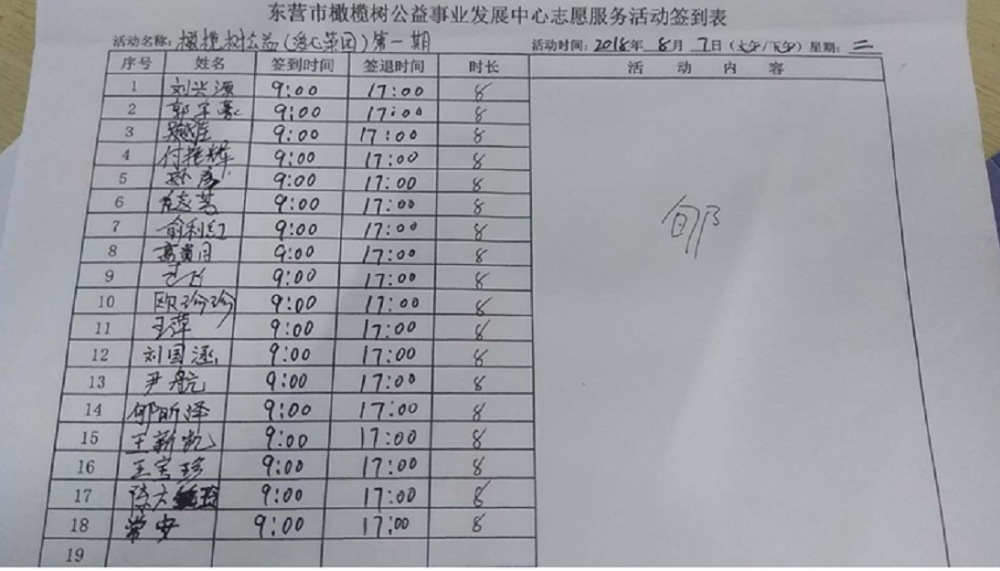 东营市橄榄树公益事业发展中心志愿服务活动签到表
活动名称：橄榄树公益（爱心菜团）第一期 活动时间：2018年8月7日（上午/下午）星期：二
序号 姓名 签到时间 签退时间 时长 活动内容
1 刘兴源 9:00 17:00 8
2 9:00 17:00 8
3 9:00 17:00 8
4 付艳辉 9:00 17:00 8
5 9:00 17:00 8
6 9:00 17:00 8
7 俞利红 9:00 17:00 8
8 9:00 17:00 8
9 9:00 17:00 8
10 欧珍珍 9:00 17:00 8
11 王萍 9:00 17:00 8
12 刘国涵 9:00 17:00 8
13 尹航 9:00 17:00 8
14 郇昕泽 9:00 17:00 8
15 王新凯 9:00 17:00 8
16 王宝珍 9:00 17:00 8
17 9:00 17:00 8
18 常安 9:00 17:00 8
19